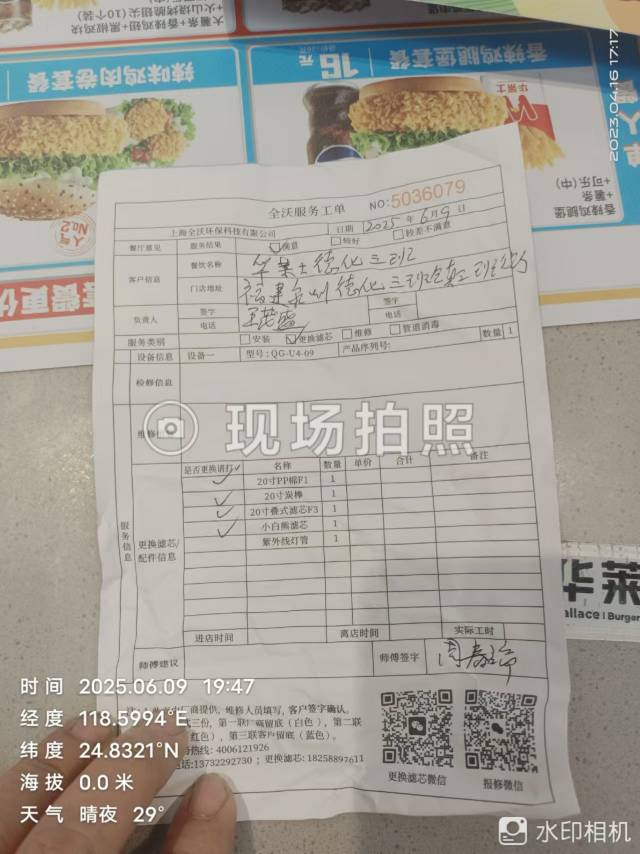 大薯条+香辣鸡翅+黑椒鸡块
+火山烧烤翅尖(10个装)
辣味鸡肉卷套餐
香辣鸡腿堡套餐
16元
华莱士
香辣鸡腿堡
+薯条
+可乐(中)
人气
No.2
2023.04.16 17:17
全沃服务工单
NO:5036079
上海全沃环保科技有限公司 日期 2025年6月9日
餐厅意见 服务结果 满意 较好 较差不满意
客户信息 餐饮名称 华莱士德化三班
门店地址 福建泉州德化三班镇三班
负责人 签字 签字
电话 电话
服务类别 安装 更换滤芯 维修 管道消毒
设备信息 设备一 型号:QG-U4-09 产品序列号: 数量 1
检修信息
现场拍照
服务信息
更换滤芯/
配件信息
是否更换请打✓ 名称 数量 单价 合计 备注
✓ 20寸PP棉F1 1
✓ 20寸炭棒 1
✓ 20寸叠式滤芯F3 1
✓ 小白熊滤芯 1
紫外线灯管 1
进店时间 离店时间 实际工时
师傅建议 师傅签字
厂商提供,维修人员填写,客户签字确认。
三份,第一联厂商留底(白色),第二联
红色),第三联客户留底(蓝色)。
热线:4006121926
电话:13732292730;更换滤芯:18258897611
更换滤芯微信
报修微信
华莱
allace | Burger
时间 2025.06.09 19:47
经度 118.5994°E
纬度 24.8321°N
海拔 0.0米
天气 晴夜 29°
水印相机